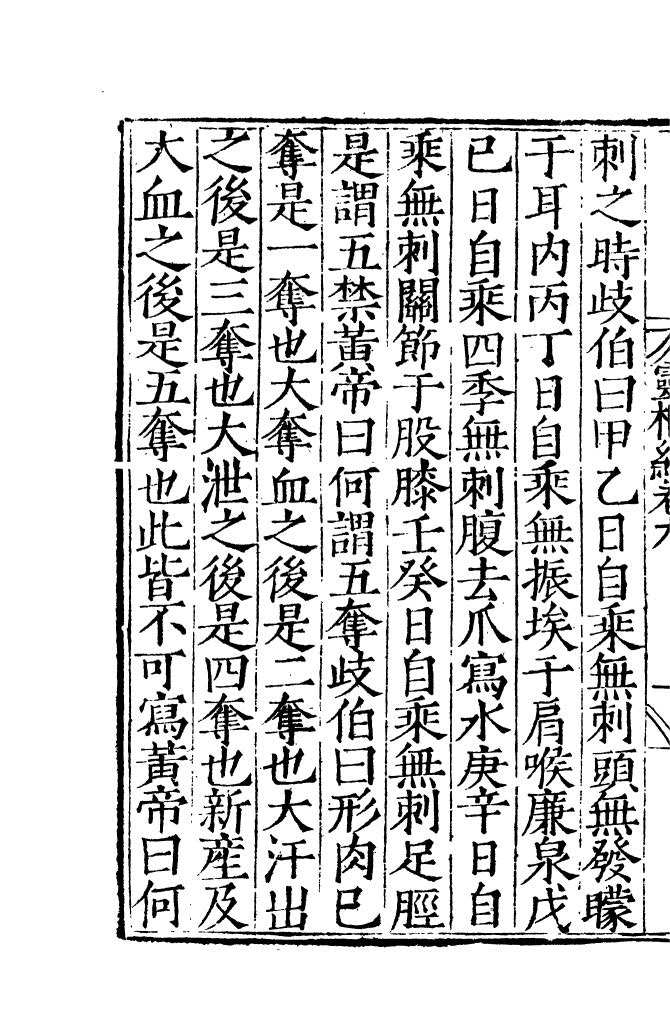 刺之時歧伯曰甲乙日自乘無刺頭無發矇
于耳内丙丁日自乘無振埃于肩喉廉泉戊
已日自乘四季無刺腹去爪寫水庚辛日自
乘無刺關節于股膝壬癸日自乘無刺足脛
是謂五禁黃帝曰何謂五奪歧伯曰形肉已
奪是一奪也大奪血之後是二奪也大汗出
之後是三奪也大泄之後是四奪也新産及
大血之後是五奪也此皆不可寫黃帝曰何